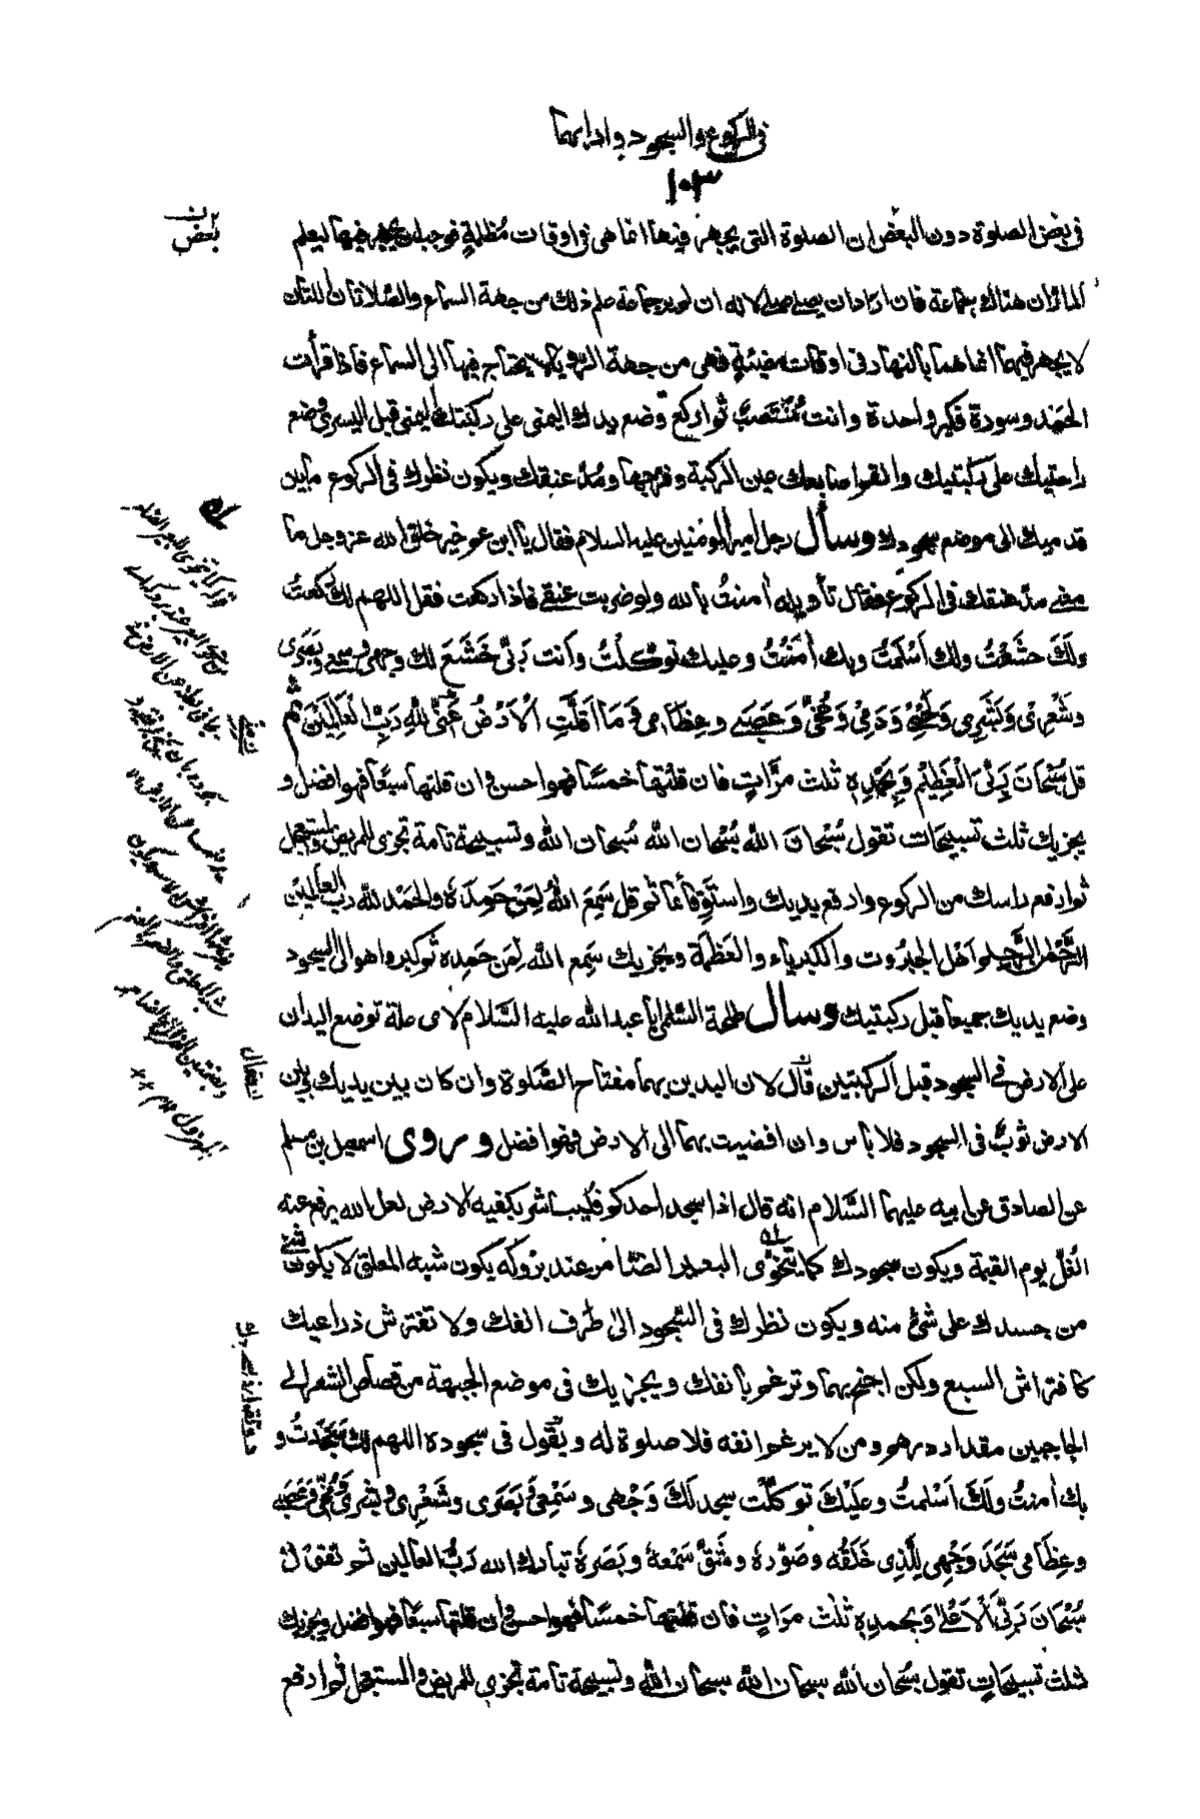 فى الركوع والسجود وادابهما
١٠٣
فى بعض الصلوة دون البعض ان الصلوة التى يجهر فيها انما هى فى اوقات مُظلمةٍ فوجب ان يجهر فيها ليعلم
المار ان هناك جماعة فان اراد ان يصلى صلى لانه ان لم ير جماعة علم ذلك من جهة السماع والصّلاتان اللتان
لا يجهر فيهما انما هما بالنهار فى اوقات مضيئةٍ فهى من جهة الرؤية لا يحتاج فيها الى السماع فاذا قرأت
الحَمْد وسورة فكبر واحدة وانت مُنْتَصَبٌ ثم اركع وضع يدك اليمنى على ركبتك اليمنى قبل اليسرى وضع
راحتيك على ركبتيك والقم اصابعك عين الركبة وفرجها ومُدّ عنقك ويكون نظرك فى الركوع مابين
قدميك الى موضع سجودك وسأل رجل امير المؤمنين عليه السلام فقال يا ابن عم خير خلق الله عز وجل ما
معنى مدّ عنقك فى الركوع فقال تأويله أمنتُ بالله ولو ضربت عنقى فاذا ركعت فقل اللهم لك ركعتُ
ولَكَ خشَعْتُ ولك اَسْلَمتُ وبك أمَنْتُ وعليك توكلتُ وأنت رَبّى خَشَعَ لك وجهى وسمعى وبَصَرى
وشَعْرِى وَبَشَرِى وَلَحْمِى وَدَمِى وَمُخّى وَعَصَبى وعِظَامى وَمَا اَقلَّتِ الْاَرْضُ مِنّى للّٰهِ رَبِّ الْعَالَمِيْنَ ثم
قل سُبْحَانَ رَبّىَ الْعَظِيْمِ وَبِحَمْدِهِ ثلث مرَّاتٍ فان قلتها خمسًا فهوا حسن وان قلتها سبعًا فهوا فضل و
يجزيك ثلث تسبيحات تقول سُبْحَانَ اللّٰه سُبْحَان اللّٰه سُبحان اللّٰه وتسبيحة تامة تجزى للمريض والمستعجل
ثم ارفع راسك من الركوع وارفع يديك واستَوِ قائما ثم قل سَمِعَ اللّٰهُ لِمَنْ حَمِدَهُ والحَمْد للّٰه ربّ العالمين
الرَّحْمٰن الرَّحيم اَهْل الجبَرُوت والكبرياء والعَظَمَة ويجزيك سَمِع اللّٰه لمن حَمِده ثم كبر واهو الى السجود
وضع يديك جميعا قبل ركبتيك وسال طلحة السّلمى ابا عبد الله عليه السَّلام لاى علة توضع اليدان
على الارض فى السجود قبل الركبتين قال لان اليدين بهما مفتاح الصَّلوة وان كان بين يديك وبين
الارض ثوبٌ فى السجود فلا باس وان افضيت بهما الى الارض فهوا فضل وروى اسمعيل بن مسلم
عن الصادق عن ابيه عليهما السَّلام انه قال اذا سجد احدكم فليباشر بكفيه الارض لعل الله يرفع عنه
الغُلّ يوم القيمة ويكون سجودك كما يتخوّى البعير الضّامر عند بروكه يكون شبه المعلق لا يكون شئ
من جسدك على شئ منه ويكون نظرك فى السّجود الى طَرف انفك ولا تفترش ذراعيك
كافتراش السبع ولكن اجنح بهما وترغم بانفك ويجزيك فى موضع الجبهة من قصاص الشعر الى
الحاجبين مقدار درهم ومن لا يرغم انفه فلا صلوة له ويقول فى سجوده اللهم لك سَجَدتُ و
بك أمنتُ ولَكَ اَسْلمتُ وعَلَيْكَ توكلْت سجد لَكَ وَجْهى وسَمْعى وبَصَرى وشَعْرِى وبشرى ومُخّى وعَصَبى
وعِظَامى سَجَدَ وَجْهِى لِلَّذِى خَلَقَه وصَوَّرهُ وشَقَّ سَمْعهُ وبَصَرهُ تبارك الله رَبُّ العالمين ثم تقول
سُبْحَانَ رَبّىَ الاَعْلٰى وَبحمدِهٖ ثلٰث مرَاتٍ فان قلتها خمسًا فهوا حسن وان قلتها سبعًا فهوا فضل ويجزيك
ثلث تسبيحاتٍ تقول سُبحان اللّٰه سبحان اللّٰه سبحان اللّٰه وتسبيحة تامة تجزى للمريض والمستعجل ثم ارفع
بعض